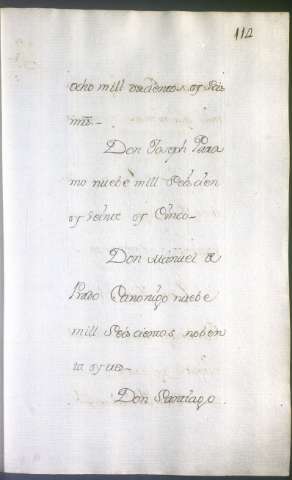 112
ocho mill
mrs.-
Don Joseph Para
mo nuebe mill Seiscien
os y Veinte y Cinco-
Don Manuel de
Prado Canonigo nuebe
mill Seiscientos noben
ta y
Don Santiago